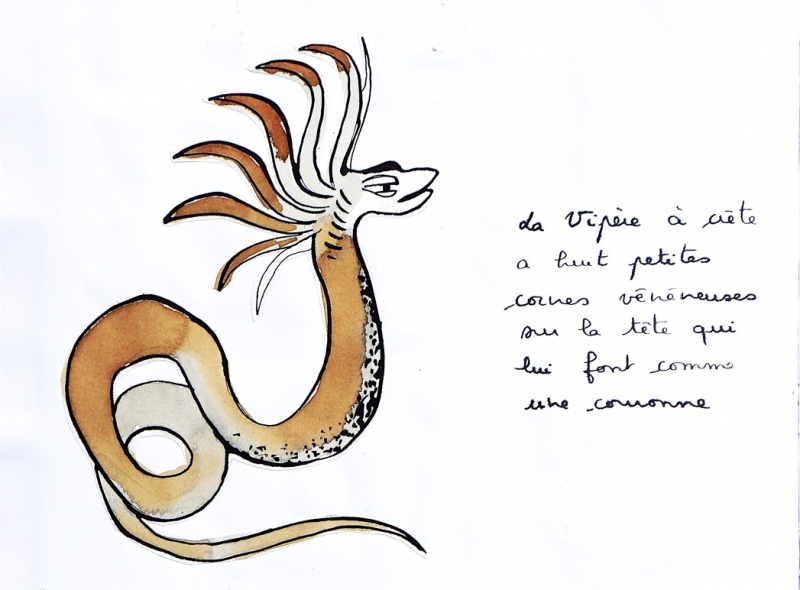 La Vipère à crête
a huit petites
cornes vénéneuses
sur la tête qui
lui font comme
une couronne